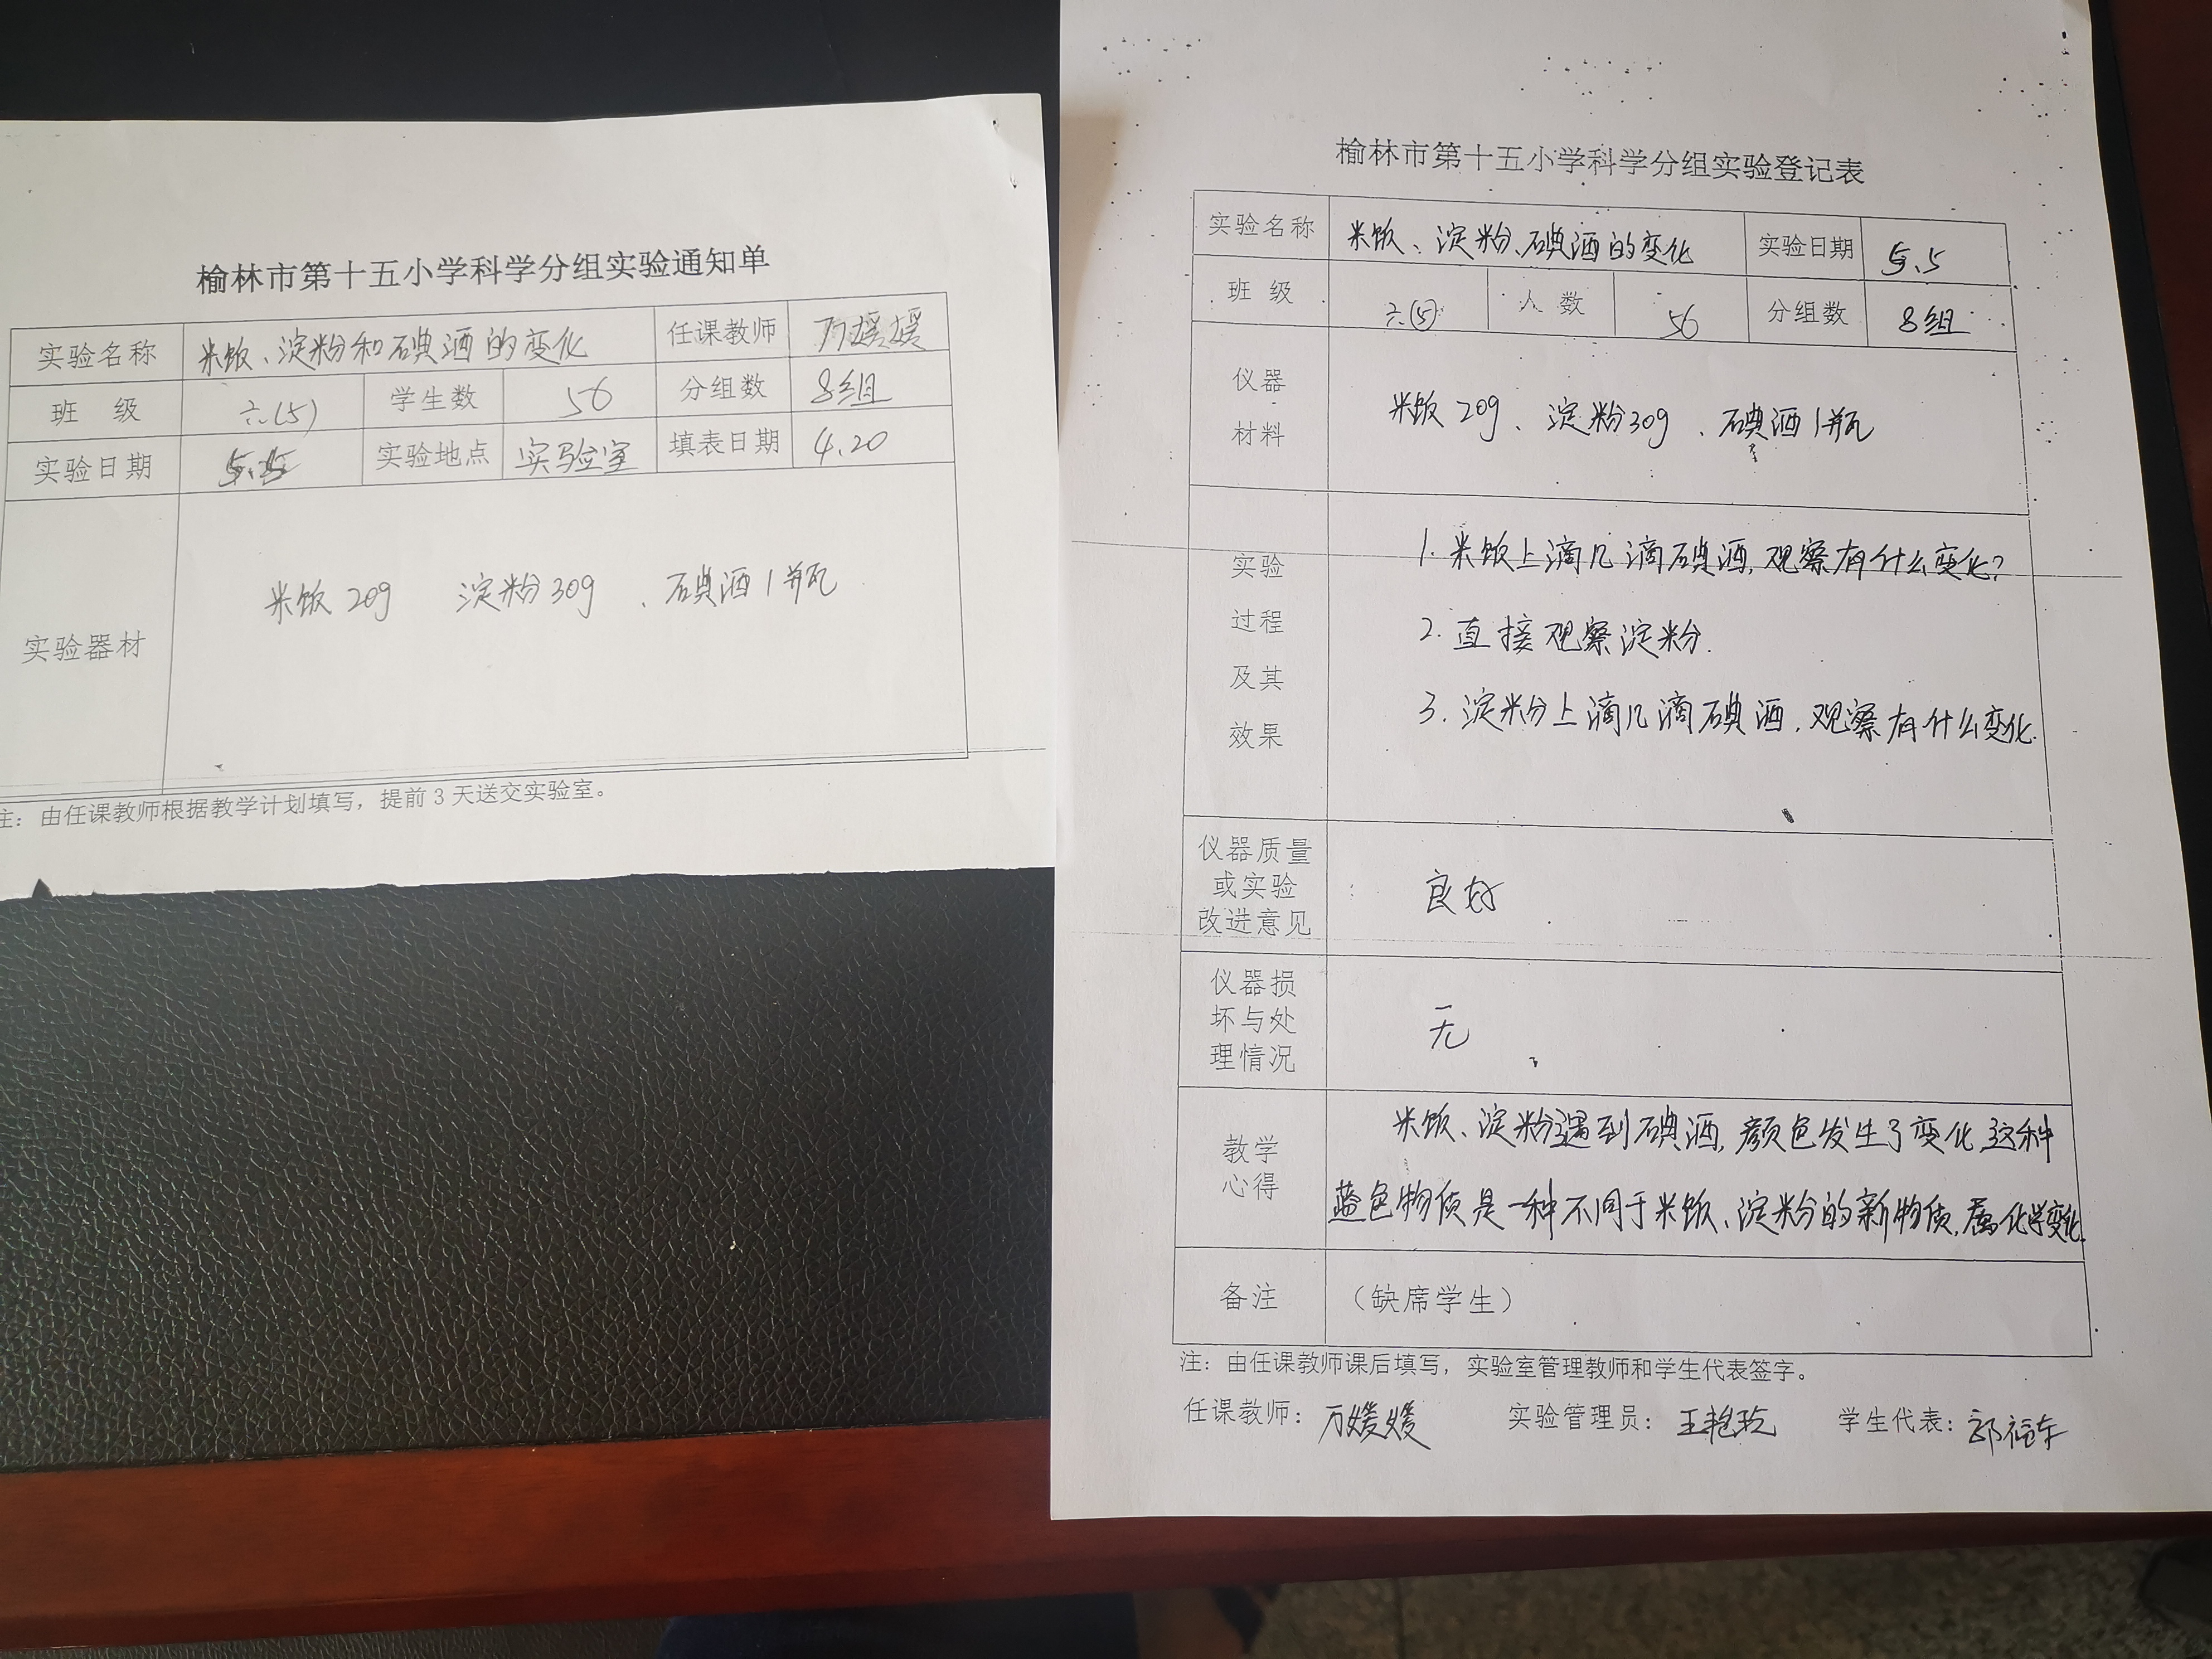 榆林市第十五小学科学分组实验通知单
实验名称 米饭、淀粉和碘酒的变化 任课教师 万媛媛
班 级 六(5) 学生数 56 分组数 8组
实验日期 5.5 实验地点 实验室 填表日期 4.20
实验器材 米饭20g 淀粉30g、碘酒1瓶
注：由任课教师根据教学计划填写，提前3天送交实验室。
榆林市第十五小学科学分组实验登记表
实验名称 米饭、淀粉、碘酒的变化 实验日期 5.5
班 级 六(5) 人 数 56 分组数 8组
仪器
材料
米饭20g、淀粉30g、碘酒1瓶
实验
过程
及其
效果
1.米饭上滴几滴碘酒,观察有什么变化?
2.直接观察淀粉.
3.淀粉上滴几滴碘酒,观察有什么变化.
仪器质量
或实验
改进意见
良好
仪器损
坏与处
理情况
无
教学
心得
米饭、淀粉遇到碘酒,颜色发生了变化,这种
蓝色物质是一种不同于米饭、淀粉的新物质,属化学变化.
备注 （缺席学生）
注：由任课教师课后填写，实验室管理教师和学生代表签字。
任课教师：万媛媛 实验管理员： 学生代表：